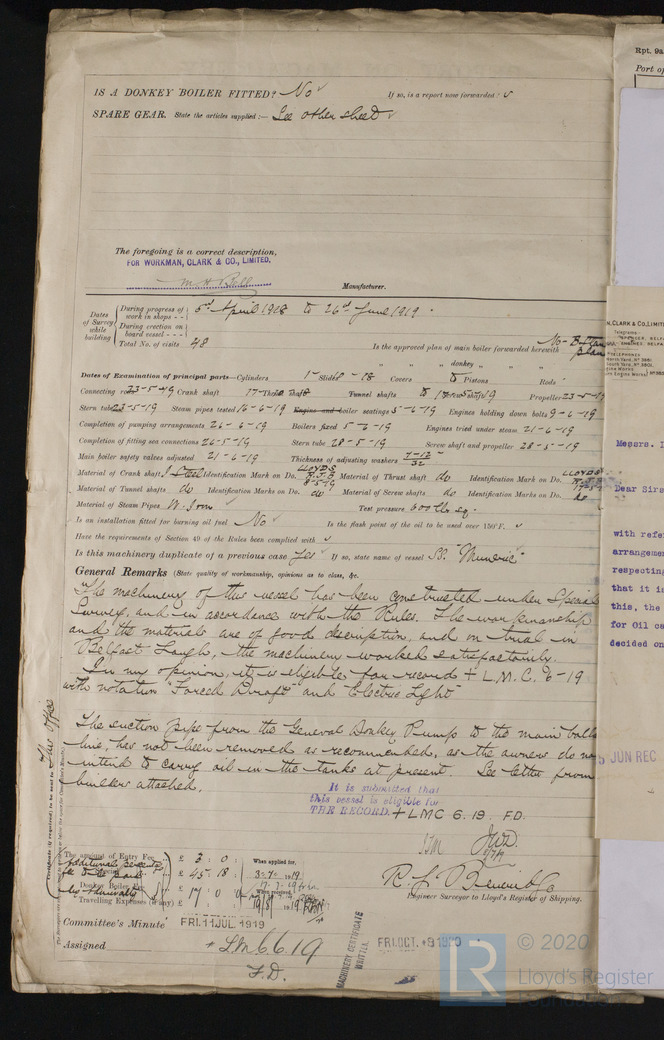 IS A DONKEY BOILER FITTED? No If so, is a report now forwarded?
SPARE GEAR. State the articles supplied :— See other sheet
The foregoing is a correct description,
FOR WORKMAN, CLARK & CO., LIMITED.
Manufacturer.
Dates of Survey while building
During progress of work in shops - - 5th April 1918 to 26th June 1919.
During erection on board vessel - - -
Total No. of visits 48
Is the approved plan of main boiler forwarded herewith No
" " " donkey " "
Dates of Examination of principal parts—Cylinders Slides Covers Pistons Rods
Connecting rods 23-5-19 Crank shaft Thrust shaft Tunnel shafts Screw shaft Propeller 23-5-19
Stern tube 23-5-19 Steam pipes tested 16-6-19 Engine and boiler seatings 5-6-19 Engines holding down bolts 9-6-19
Completion of pumping arrangements 26-6-19 Boilers fixed 5-6-19 Engines tried under steam 21-6-19
Completion of fitting sea connections 26-5-19 Stern tube 28-5-19 Screw shaft and propeller 28-5-19
Main boiler safety valves adjusted 21-6-19 Thickness of adjusting washers
Material of Crank shaft I Steel Identification Mark on Do. LLOYDS Material of Thrust shaft do Identification Mark on Do. LLOYDS
Material of Tunnel shafts do Identification Marks on Do. do Material of Screw shafts do Identification Marks on Do. do
Material of Steam Pipes W. Iron Test pressure 600 lbs sq.
Is an installation fitted for burning oil fuel No Is the flash point of the oil to be used over 150°F.
Have the requirements of Section 49 of the Rules been complied with
Is this machinery duplicate of a previous case Yes If so, state name of vessel SS. "Muneric"
General Remarks (State quality of workmanship, opinions as to class, &c.
The machinery of this vessel has been constructed under Special
Survey, and in accordance with the Rules. The workmanship
and the materials are of good description, and on trial in
Belfast Lough, the machinery worked satisfactorily.
In my opinion, it is eligible for record + L.M.C. 6-19
with notation "Forced Draft" and "Electric Light"
The suction pipe from the General Donkey Pump to the main ballast
line, has not been removed as recommended, as the owners do not
intend to carry oil in the tanks at present. See letter from
builders attached.
It is submitted that
this vessel is eligible for
THE RECORD. + LMC 6.19. F.D.
The amount of Entry Fee £ 3 : 0 : When applied for,
£ 45 : 18 : 3-7-1919
Donkey Boiler Fee £ 17 : 0 : 0 When received,
Travelling Expenses (if any) £ 1919
Engineer Surveyor to Lloyd's Register of Shipping.
Committee's Minute FRI. 11 JUL. 1919 FRI. OCT. 1920
Assigned + LMC 6.19
F.D.
MACHINERY CERTIFICATE
WRITTEN.
This Office
Rpt. 9a
Port of
N, CLARK & CO., LIMITED
Messrs. L
Dear Sirs
with refer
arrangemen
respecting
that it is
this, the
for Oil ca
decided on
JUN REC
© 2020
LR
Lloyd's Register
Foundation